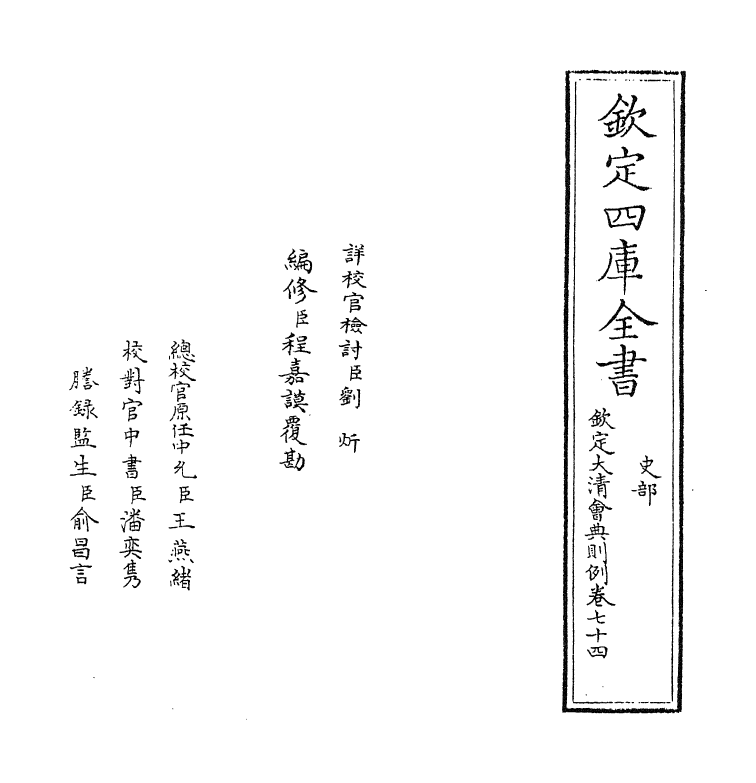 欽定四庫全書
史部
欽定大清會典則例卷七十四
詳校官檢討臣劉炘
編修臣程嘉謨覆勘
總校官原任中允臣王燕緒
校對官中書臣潘奕雋
謄錄監生臣俞昌言